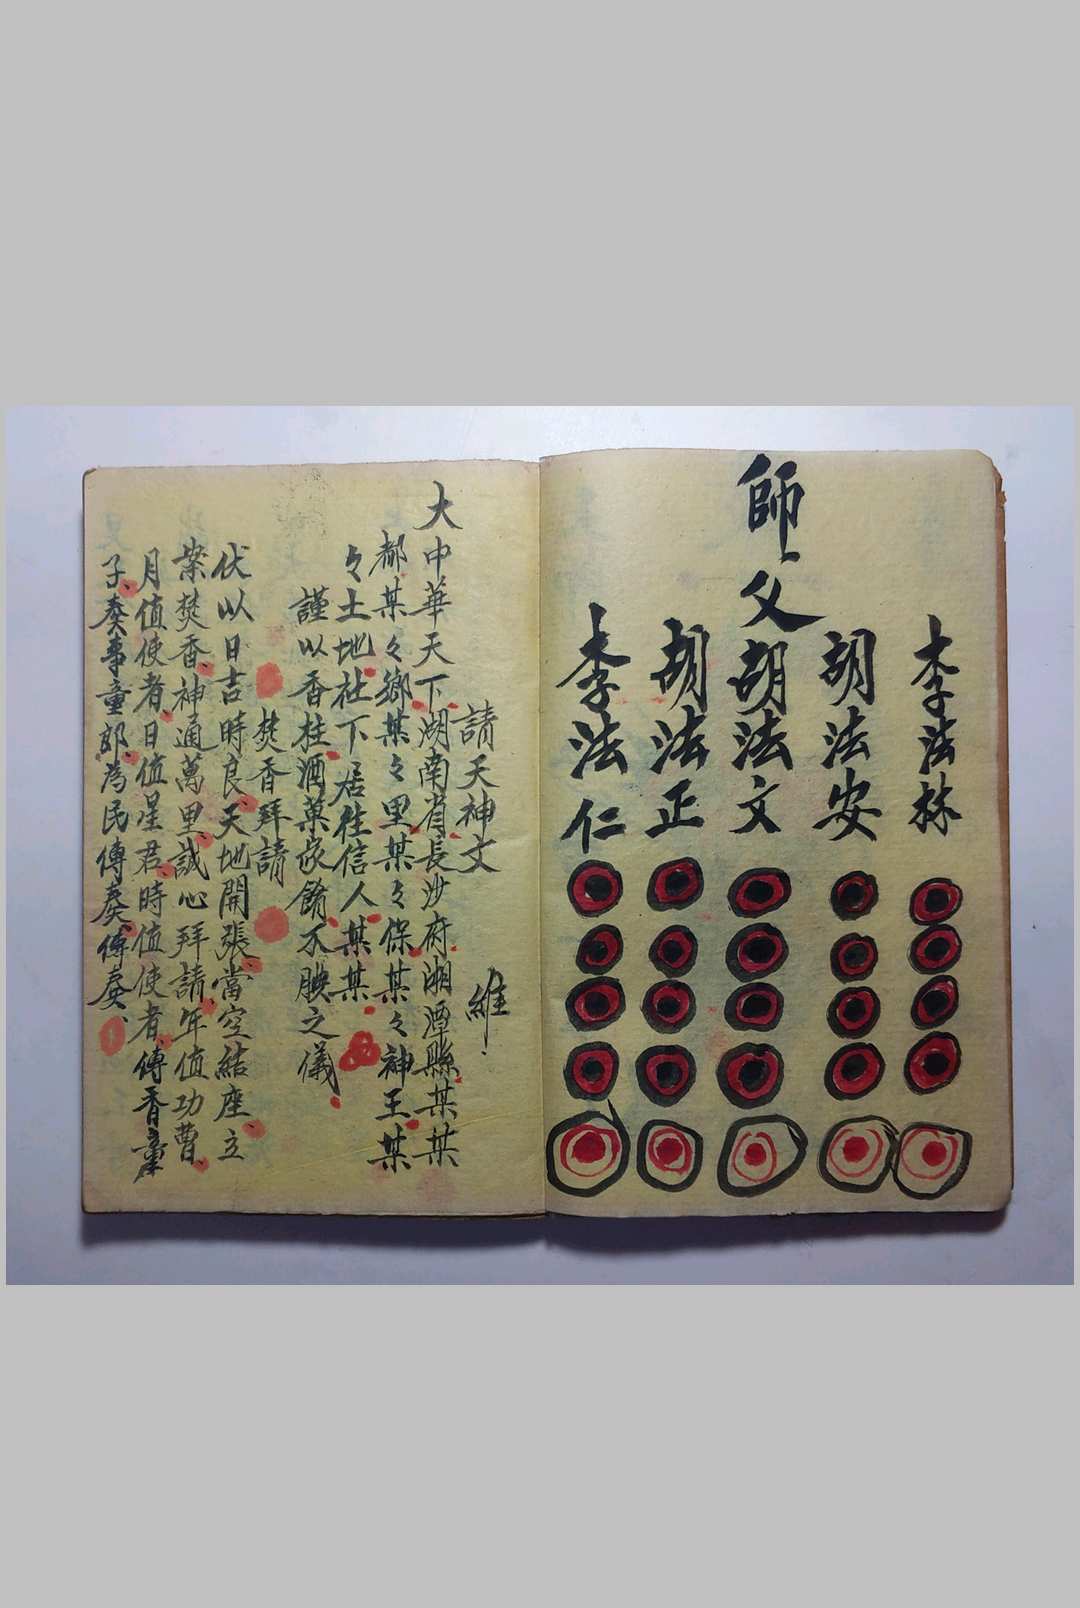 師父
李法林
胡法安
胡法文
胡法正
李法仁
請天神文 維
大中華天下湖南省長沙府湘潭縣某某
都某々鄉某々里某々保某々神王某
々土地社下居住信人某某
謹以香柱酒菓家餚不腆之儀
焚香拜請
伏以日吉時良、天地開張、當空結座、立
案焚香、神通萬里、誠心拜請、年值功曹、
月值使者、日值星君、時值使者、傳香童
子、奏事童郎、為民傳奏、傳奏、